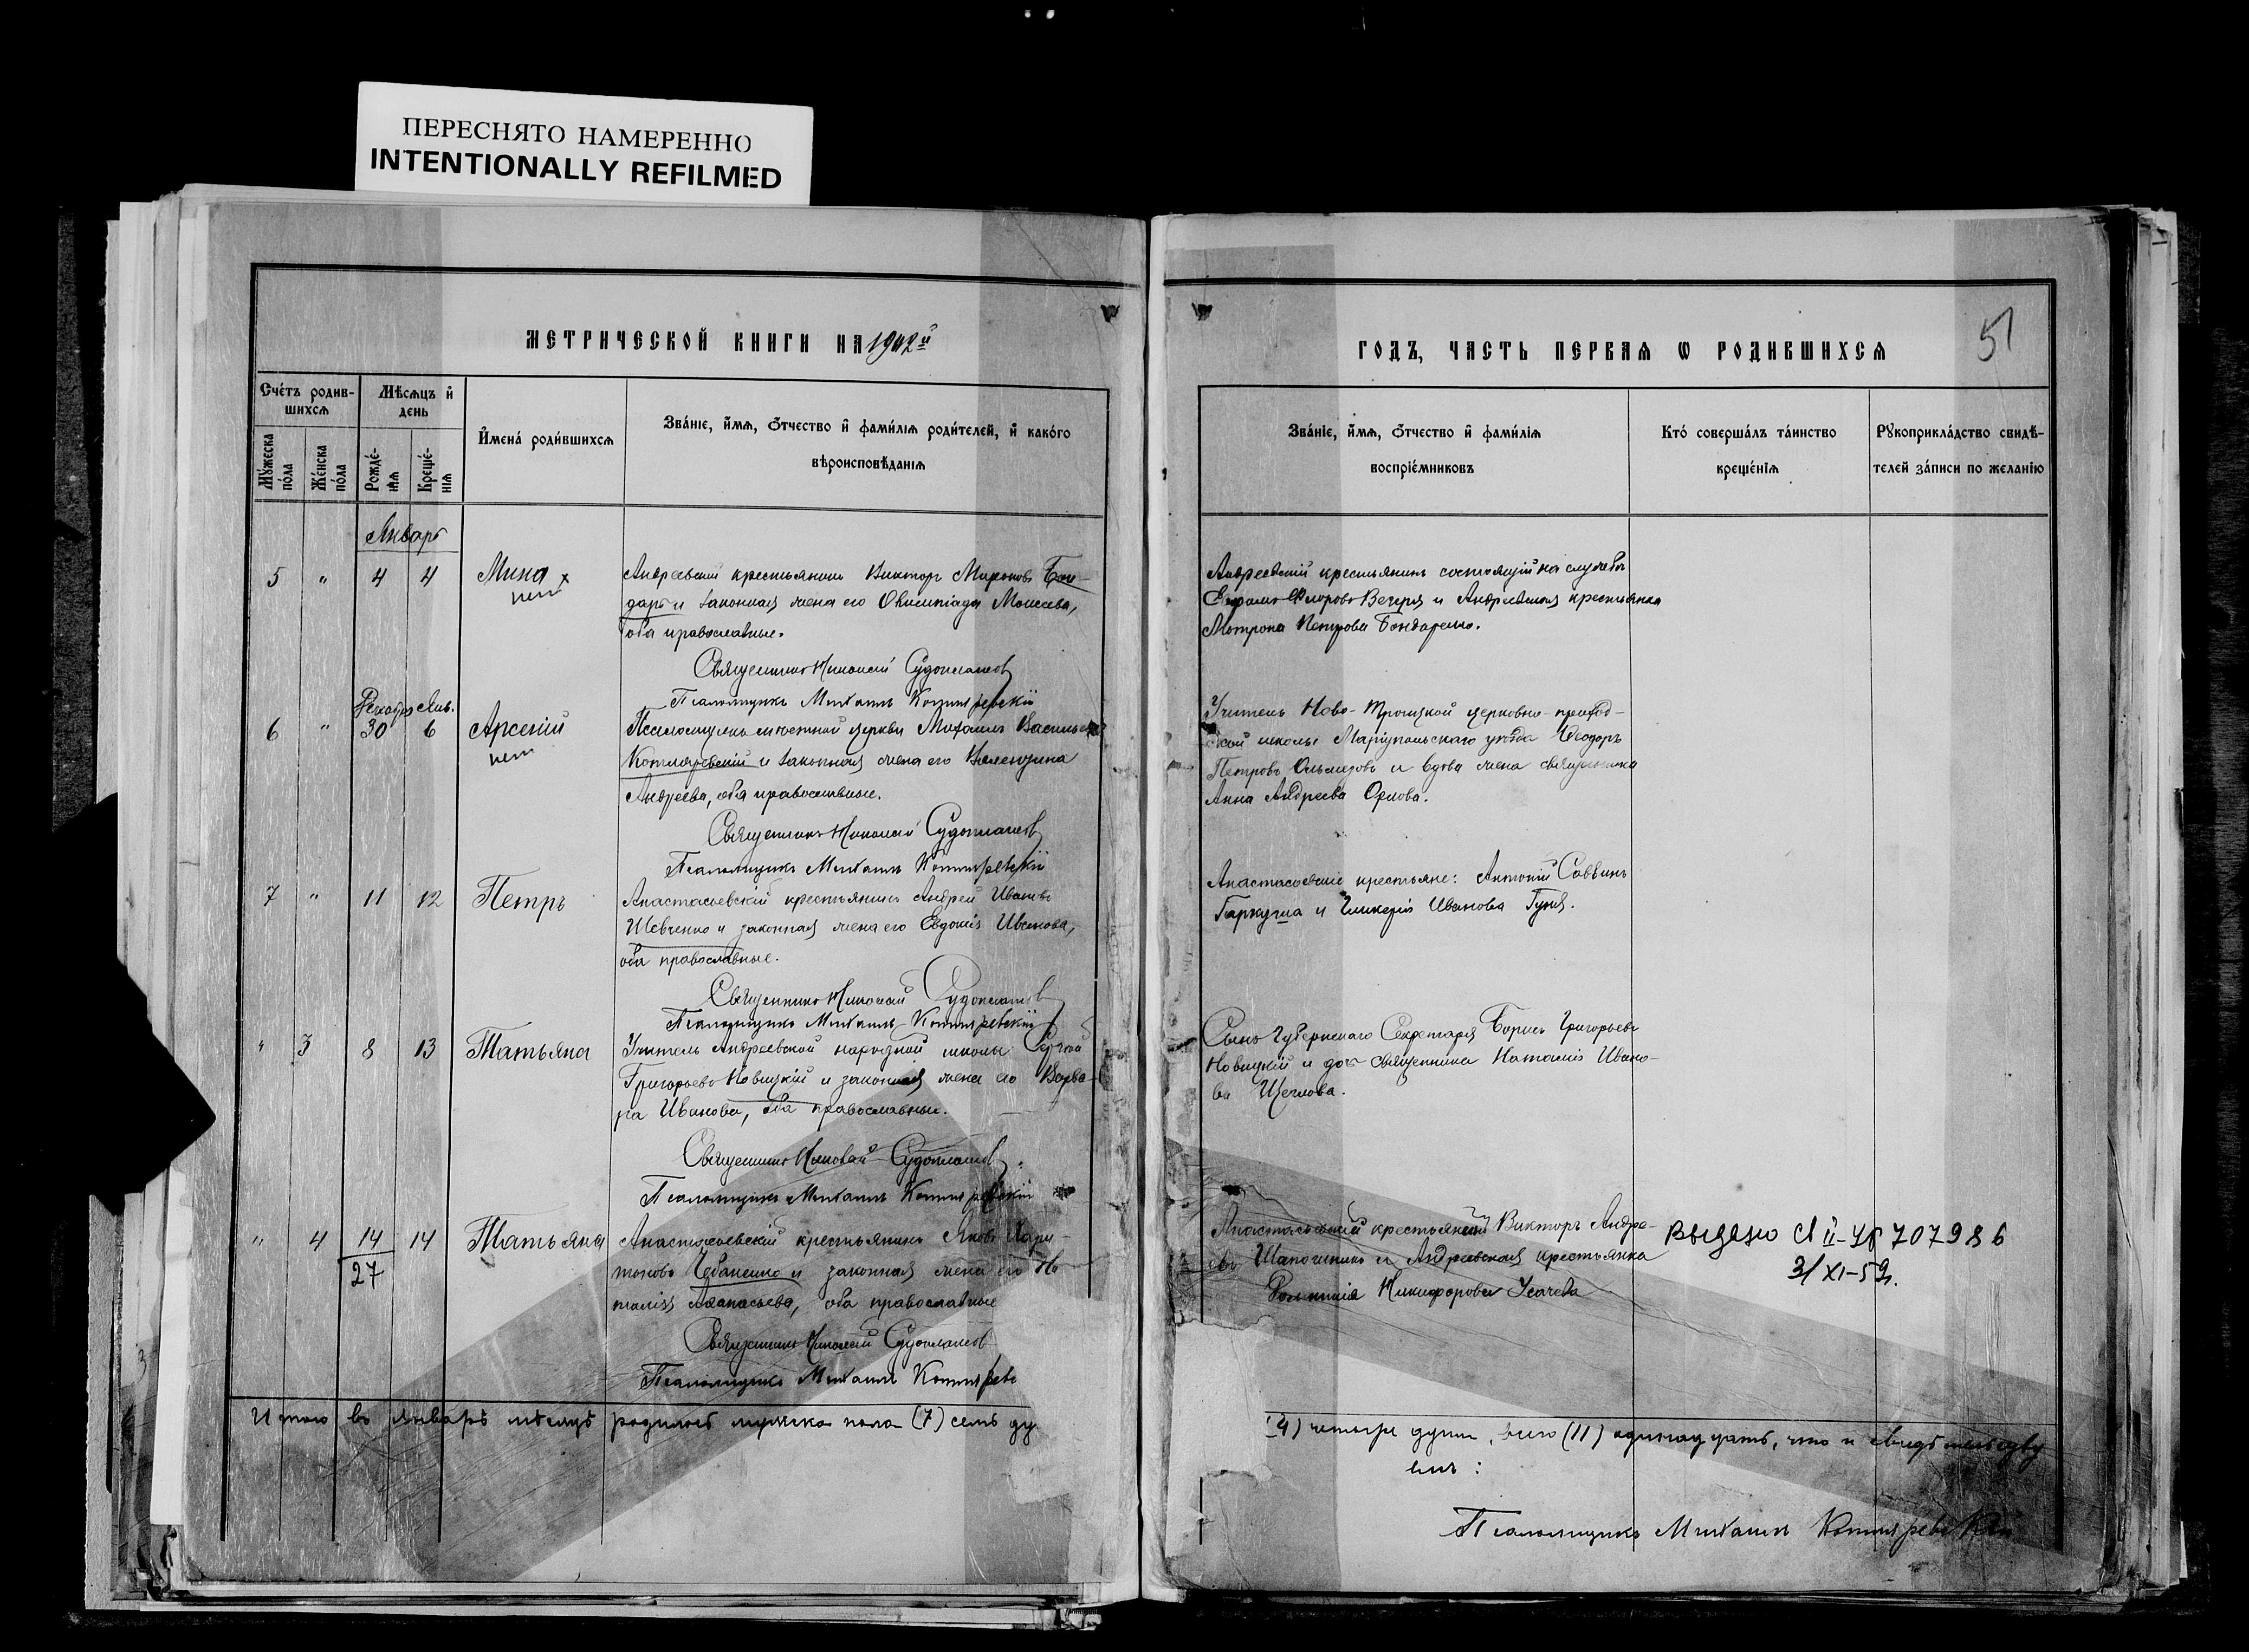 ПЕРЕСНЯТО НАМЕРЕННО
INTENTIONALLY REFILMED
МЕТРИЧЕСКОЙ КНИГИ НА
Счетъ родив-
шихся
Мѣсяцъ и
день
Мужеска
пола
Женска
пола
Рожде-
нія
Креще-
нія
Имена родившихся
Званіе, имя, отчество и фамилія родителей, и какого
вѣроисповѣданія
Январь
5 " 4 4 Мина
нет
Андреевскій крестьянинъ Викторъ Мироновъ Бон-
дарь и законная жена его Олимпіада Моисеева,
оба православные.
Священникъ Николай Судоплатовъ
Псаломщикъ Михаилъ Котляревскій
Декабрь Янв.
6 " 30 6 Арсеній
нет
Псаломщикъ мѣстной церкви Михаилъ Васильевъ
Котляревскій и законная жена его Валентина
Андреева, оба православные.
Священникъ Николай Судоплатовъ
Псаломщикъ Михаилъ Котляревскій
7 " 11 12 Петръ
Анастасьевскій крестьянинъ Андрей Ивановъ
Шевченко и законная жена его Евдокія Иванова,
оба православные.
Священникъ Николай Судоплатовъ
Псаломщикъ Михаилъ Котляревскій
" 3 8 13 Татьяна
Учитель Андреевской народной школы Сергѣй
Григорьевъ Новицкій и законная жена его Варва-
ра Иванова, оба православные.
Священникъ Николай Судоплатовъ
Псаломщикъ Михаилъ Котляревскій
" 4 14 14 Татьяна
27
Анастасьевскій крестьянинъ Яковъ Хари-
тоновъ Чебаненко и законная жена его На-
талія Аѳанасьева, оба православные
Священникъ Николай Судоплатовъ
Псаломщикъ Михаилъ Котляревс
Итого въ январѣ мѣсяцѣ родилось мужска пола (7) семь ду
ГОДЪ, ЧАСТЬ ПЕРВАЯ Ѡ РОДИВШИХСЯ
Званіе, имя, отчество и фамилія
воспріемниковъ
Кто совершалъ таинство
крещенія
Рукоприкладство свидѣ-
телей записи по желанію
Андреевскій крестьянинъ состоящій на службѣ
Флоровъ Вечеря и Андреевская крестьянка
Матрона Петрова Бондаренко.
Учитель Ново-Троицкой церковно-приход-
ской школы Маріупольскаго уѣзда Ѳеодоръ
Петровъ и вдова жена священника
Анна Андреева Орлова.
Анастасьевскіе крестьяне: Антоній Саввинъ
Гаркуша и Гликерія Иванова Гуня.
Сынъ Губернскаго Секретаря Борисъ Григорьевъ
Новицкій и дочь священника Наталія Ивано-
ва Щеглова.
Анастасьевскій крестьянинъ Викторъ Андре-
евъ Шапошникъ и Андреевская крестьянка
Никифорова Усачева
выдано 707986
(4) четыре души, всего (11) одинадцать, что и свидѣтельству
емъ:
Псаломщикъ Михаилъ Котляревскій